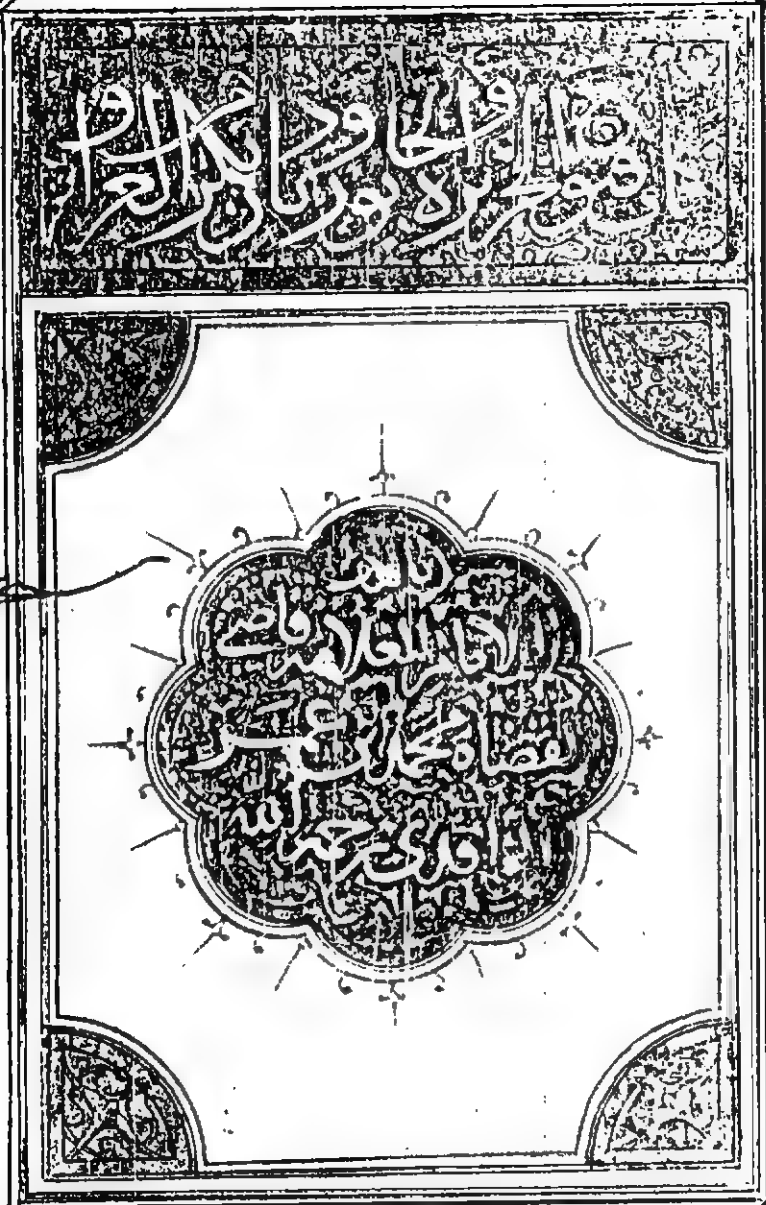 كتاب فتوح الجزيرة والخابور وديار بكر والعراق
تأليف
الامام العلامه قاضي
القضاه محمد بن عمر
الواقدي رحمه الله